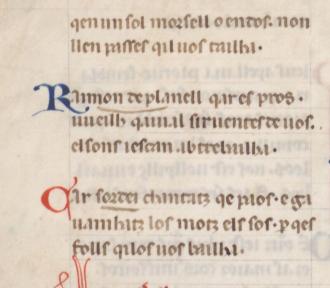 qen un sol morsell o en tos. non
llen passes qil uos tailhi.
Raimon de planell qar es pros.
uueilh qun sil siruentes de uos.
elsons iescan ab trebailhi.
Car sordei chantatz qe paos. e ga
uainhatz los motz els sos. p qes
folls qilos uos bailhi.